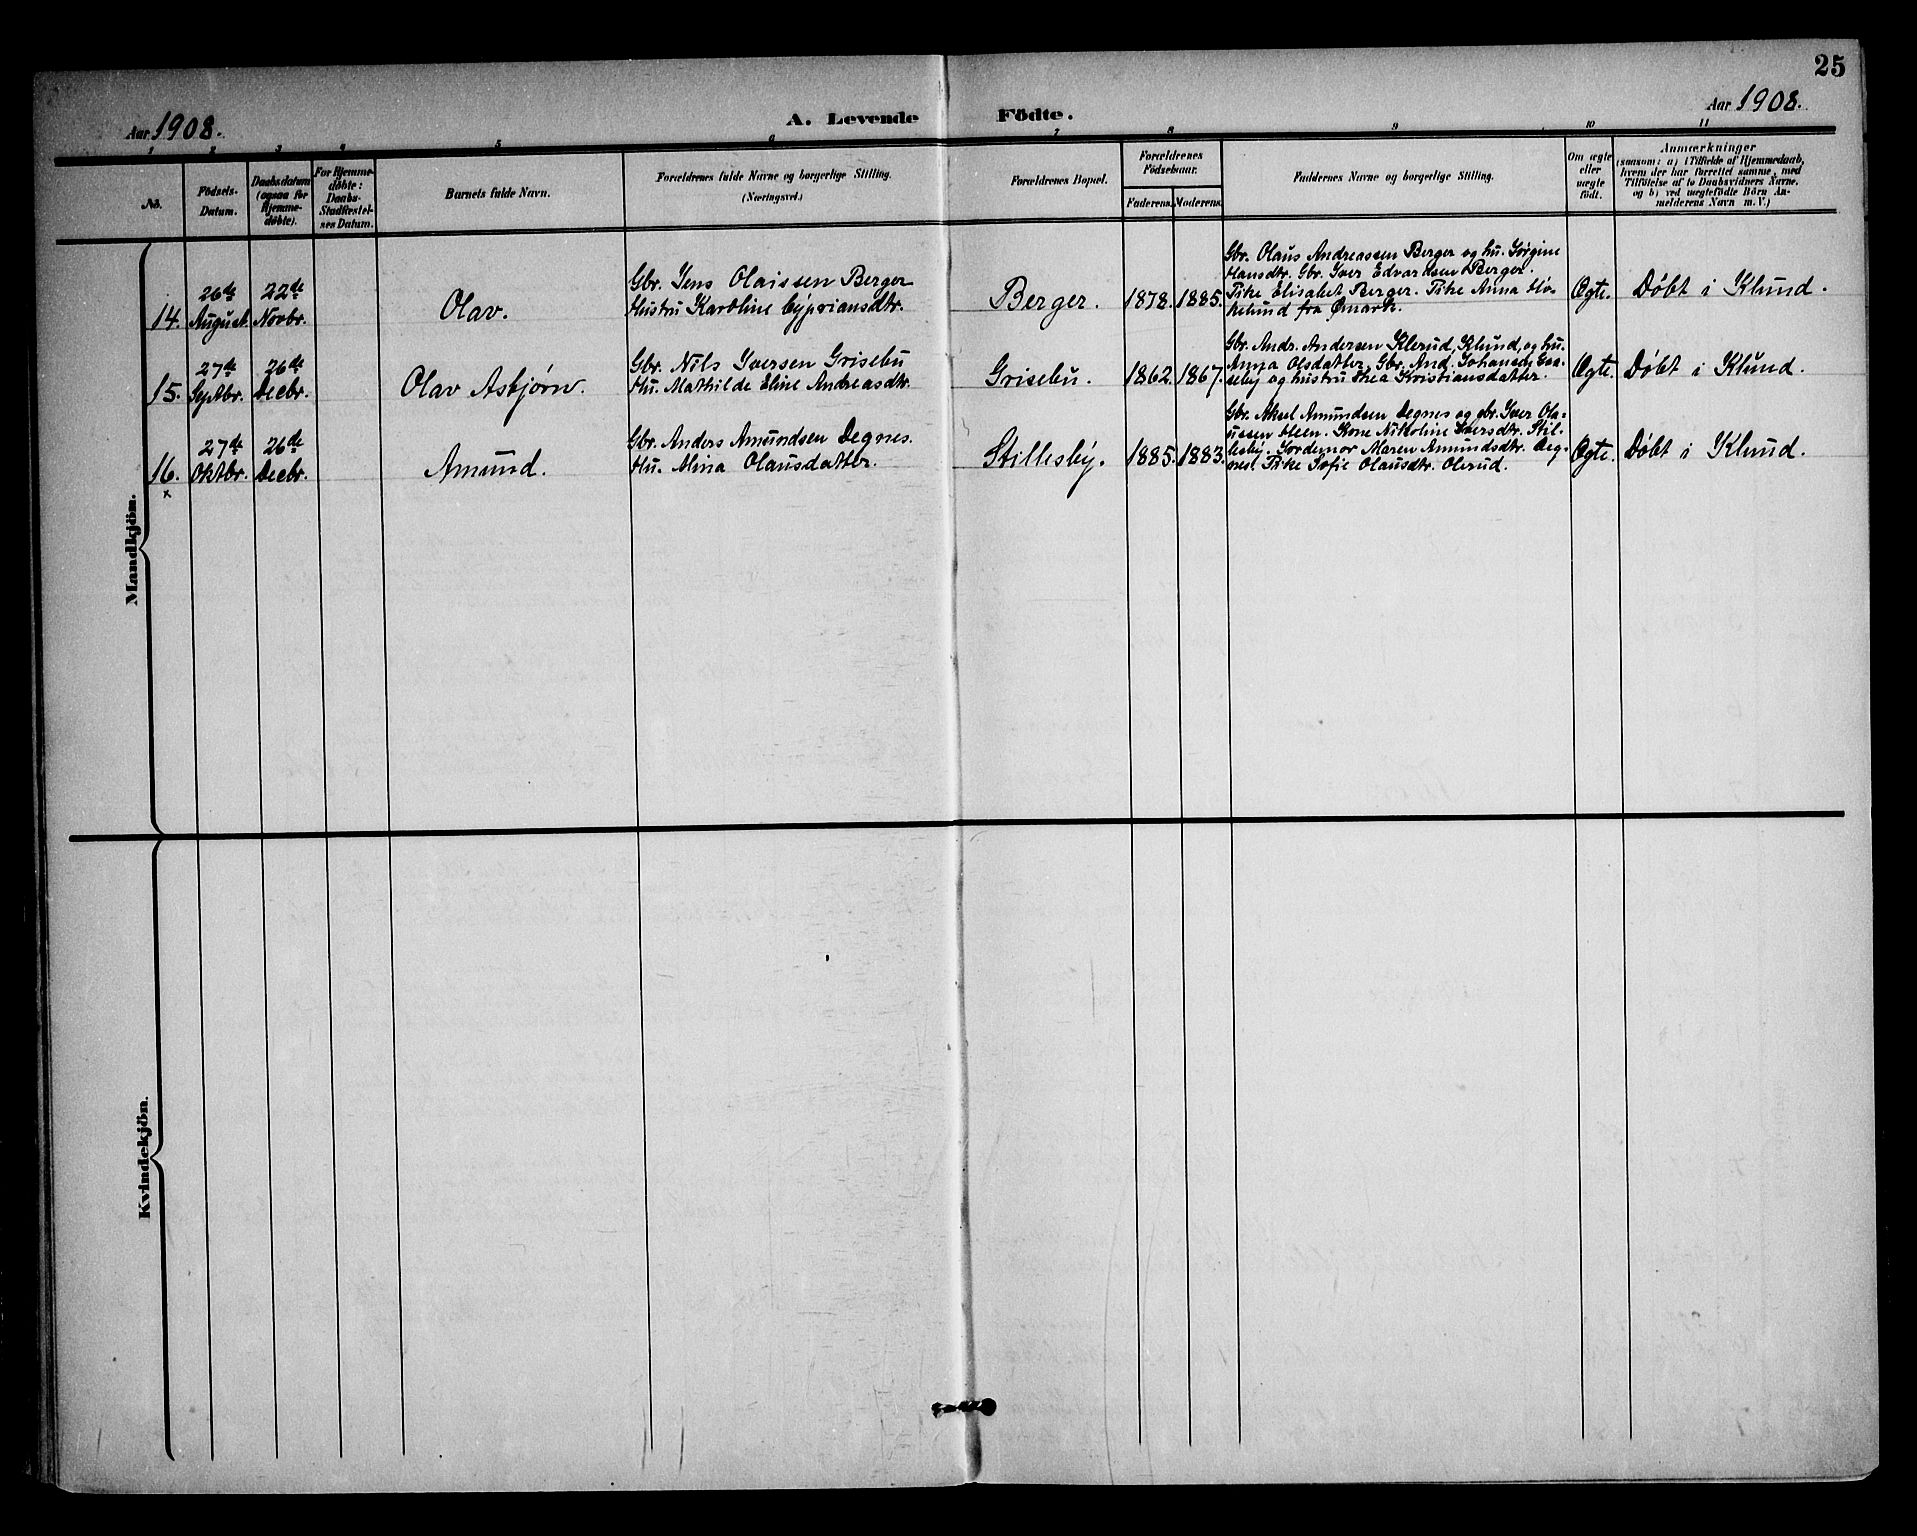 25
Aar 1908.
A. Levende Födte.
Aar 1908.
1 2 3 4 5 6 7 8 9 10 11
No.
Födsels-
Datum.
Daabsdatum
(ogsaa for
Hjemme-
døbte).
For Hjemme-
døbte:
Daabs-
Stadfæstel-
ses Datum.
Barnets fulde Navn.
Forældrenes fulde Navne og borgerlige Stilling.
(Næringsvei.)
Forældrenes Bopæl.
Forældrenes
Födselsaar.
Faderens.
Moderens.
Faddernes Navne og borgerlige Stilling.
Om ægte
eller
uægte
født.
Anmærkninger
(saasom: a) i Tilfælde af Hjemmedaab,
hvem der har forrettet samme, med
Tilføielse af to Daabsvidners Navne,
og b) ved uægtefödte Börn An-
melderens Navn m. V.)
Mandkjön.
14.
26de
August.
22de
Novbr.
Olav.
Gbr. Jens Olaissen Berger
Hustru Karoline Cypriansdtr.
Berger.
1878.
1885.
Gbr. Olaus Andreassen Berger og hu. Jørgine
Hansdtr. Gbr. Iver Edvardsen Berger.
Pike Elisabet Berger. Pike Anna Hö-
kelund fra Ømark.
Ægte.
Döbt i Klund.
15.
27de
Septbr.
26de
Decbr.
Olav Asbjørn.
Gbr. Nils Iversen Grisebu
Hu. Mathilde Eline Andreasdtr.
Grisebu.
1862.
1867.
Gbr. Andr. Andersen Klerud, Klund, og hu.
Anna Olsdatter, Gbr. And. Johansen
og hustru Thea Kristiansdatter.
Ægte.
Döbt i Klund.
16.
x
27de
Oktbr.
26de
Decbr.
Amund.
Gbr. Anders Amundsen Degnes.
Hu. Alina Olausdatter.
Stillesby.
1885.
1883.
Gbr. Aksel Amundsen Degnes og gbr. Iver Ola-
ussen Kone Nikoline Iversdtr. Stil-
lesby. Jordemor Maren Amundsdtr. Deg-
nes. Pike Sofie Olausdtr. Olerud.
Ægte.
Döbt i Klund.
Kvindekjön.